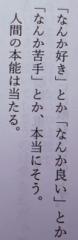 「なんか好き」とか「なんか良い」とか
「なんか苦手」とか、本当にそう。
人間の本能は当たる。